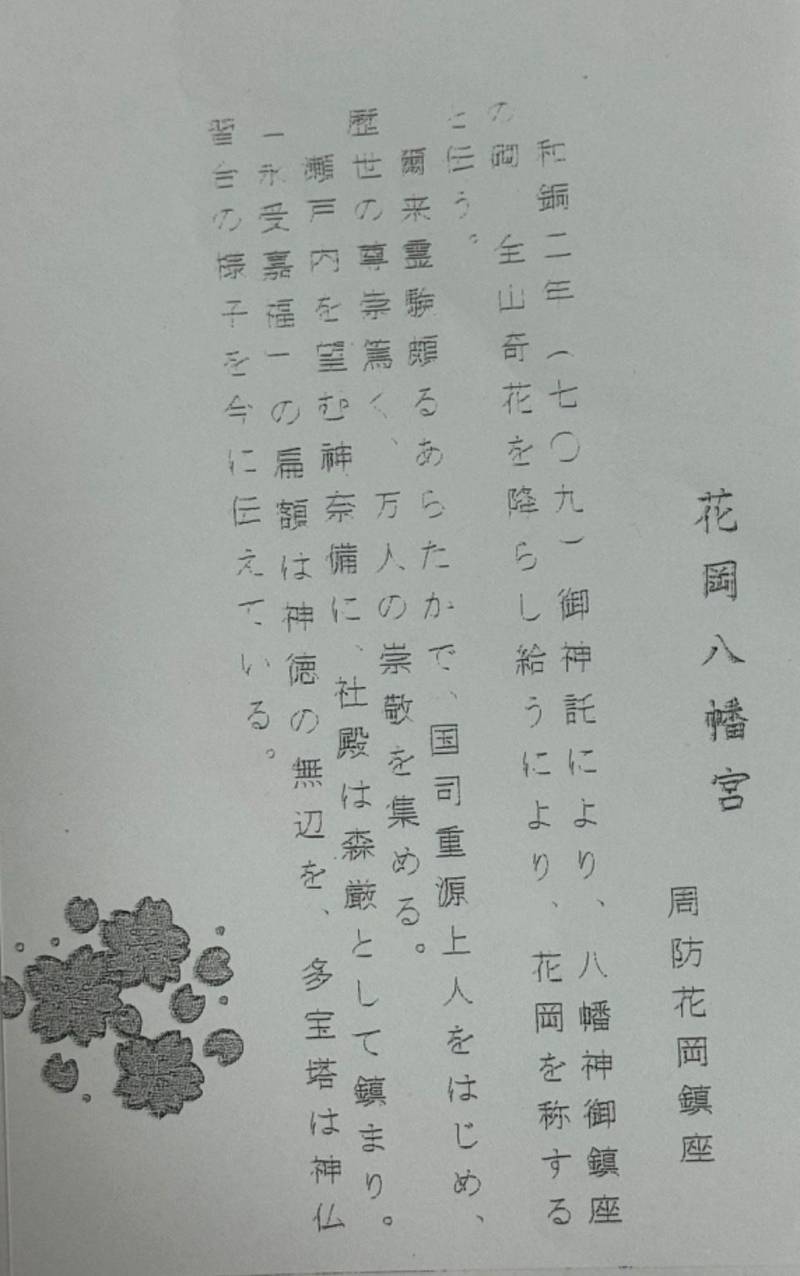 花岡八幡宮
周防花岡鎮座
和銅二年（七〇九）御神託により、八幡神御鎮座
の砌、全山奇花を降らし給うにより、花岡を称する
と伝う。
爾来霊験頗るあらたかで、国司重源上人をはじめ、
歴世の尊崇篤く、万人の崇敬を集める。
瀬戸内を望む神奈備に、社殿は森厳として鎮まり。
「永受嘉福」の扁額は神徳の無辺を、多宝塔は神仏
習合の様子を今に伝えている。